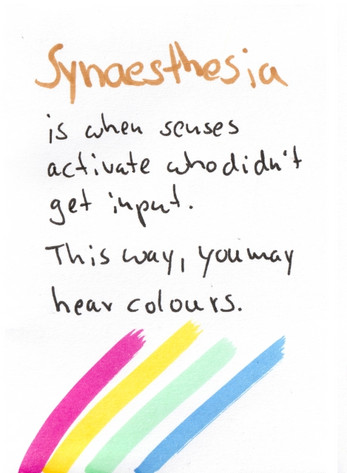 Synaesthesia
is when senses
activate who didn't
get input.
This way, you may
hear colours.